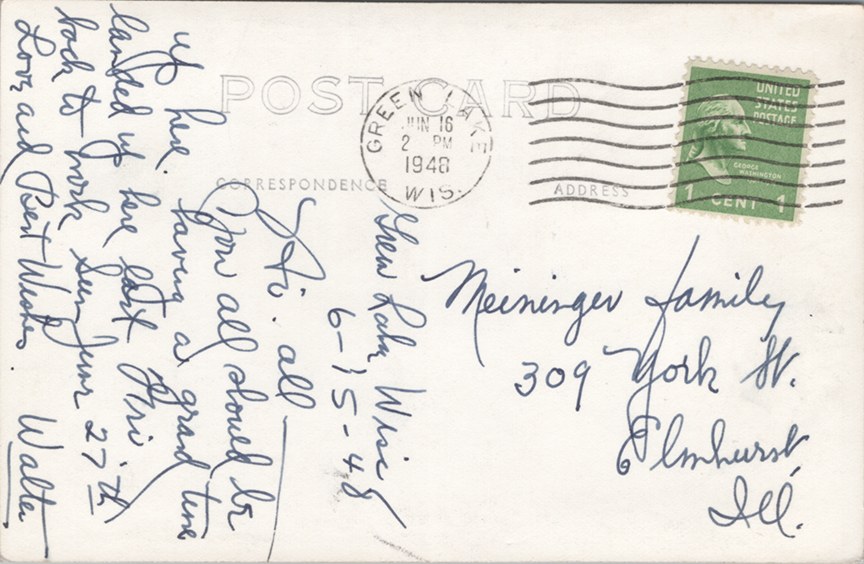 POST CARD
GREEN LAKE
JUN 16
2 PM
1948
WIS.
UNITED
STATES
POSTAGE
GEORGE
WASHINGTON
1 CENT 1
CORRESPONDENCE
ADDRESS
Green Lake, Wisc
6-15-48
Hi all
You all should be
up here. Having a grand time
landed up here last Fri.
back to work Sun June 27th
Love and Best Wishes. Walter
Meininger family
309 York St.
Elmhurst,
Ill.